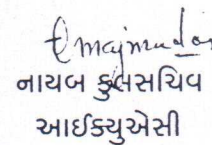 નાયબ કુલસચિવ
આઈક્યુએસી